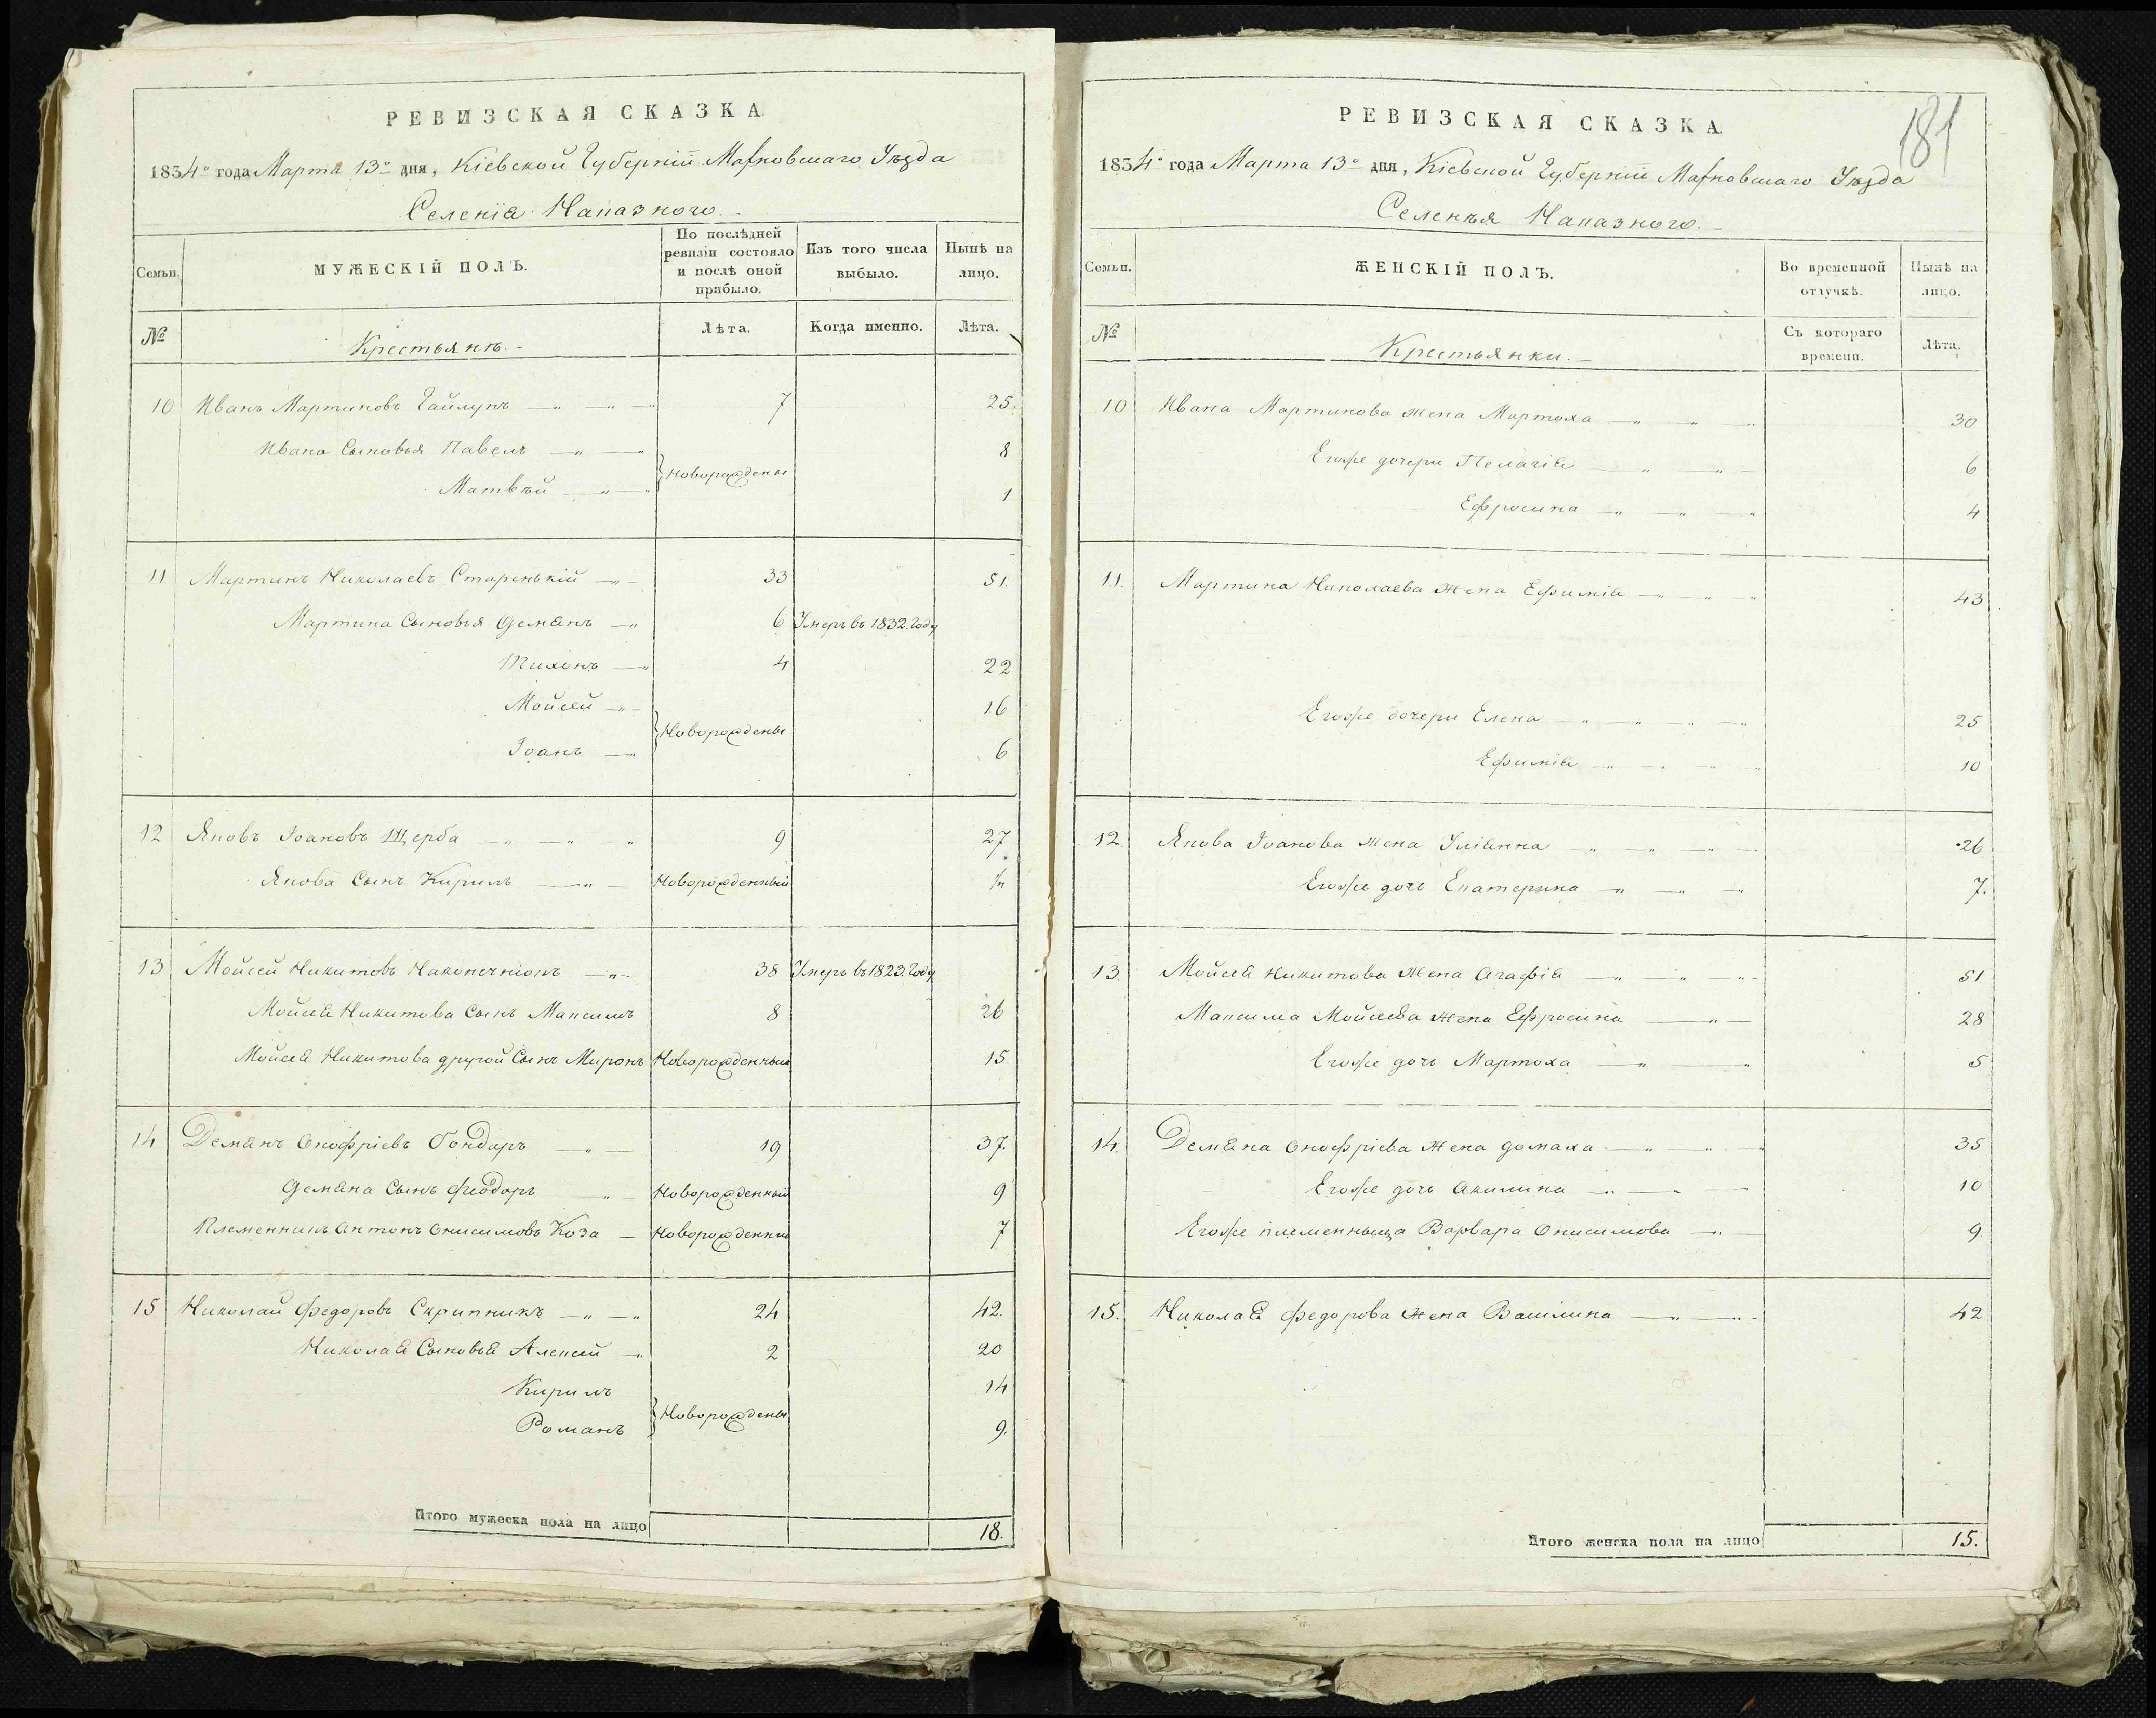 РЕВИЗСКАЯ СКАЗКА
1834го года Марта 13го дня, Кіевской Губерніи Махновскаго Уѣзда
Селенія Наказного.
Семьи.
МУЖЕСКІЙ ПОЛЪ.
По послѣдней ревизіи состояло и послѣ оной прибыло.
Изъ того числа выбыло.
Нынѣ на лицо.
№
Крестьянѣ.
Лѣта.
Когда именно.
Лѣта.
10 Иванъ Мартиновъ Гайлукъ 7 25
Ивана Сыновья Павелъ 8
Новорождены
Матвѣй 1
11 Мартинъ Николаевъ Старенькій 33 51
Мартина Сыновья Демянъ 6 Умеръ въ 1832. Году
Тихонъ 4 22
Мойсей 16
Новорождены
Іоанъ 6
12 Яковъ Іоановъ Щерба 9 27
Якова Сынъ Кирилъ Новорожденный
13 Мойсей Никитовъ Наконечніокъ 38 Умеръ въ 1823. Году
Мойсея Никитова Сынъ Максимъ 8 26
Мойсея Никитова другой Сынъ Миронъ Новорожденный 15
14 Демянъ Онофріевъ Бондаръ 19 37.
Демяна Сынъ Феодоръ Новорожденный 9
Племенникъ Антонъ Онисимовъ Коза Новорожденный 7
15 Николай Федоровъ Скрипникъ 24 42.
Николая Сыновья Алексей 2 20
Кирилъ 14
Новорождены
Романъ 9.
Итого мужеска пола на лицо 18.
181
РЕВИЗСКАЯ СКАЗКА
1834го года Марта 13го дня, Кіевской Губерніи Махновскаго Уѣзда
Селенья Наказного.
Семьи.
ЖЕНСКІЙ ПОЛЪ.
Во временной отлучкѣ.
Нынѣ на лицо.
№
Крестьянки.
Съ котораго времени.
Лѣта.
10 Ивана Мартинова жена Мартоха 30
Егоже дочери Пелагія 6
Ефросина 4
11. Мартина Николаева жена Ефимія 43
Егоже дочери Елена 25
Ефимія 10
12. Якова Іоанова жена Уліянна 26
Егоже дочь Екатерина 7.
13. Мойсея Никитова жена Агафія 51
Максима Мойсеева жена Ефросина 28
Егоже дочь Мартоха 5
14. Демяна Онофріева жена Домаха 35
Егоже дочь Акилина 10
Егоже племенныца Варвара Онисимова 9
15. Николая Федорова жена Василина 42
Итого женска пола на лицо 15.